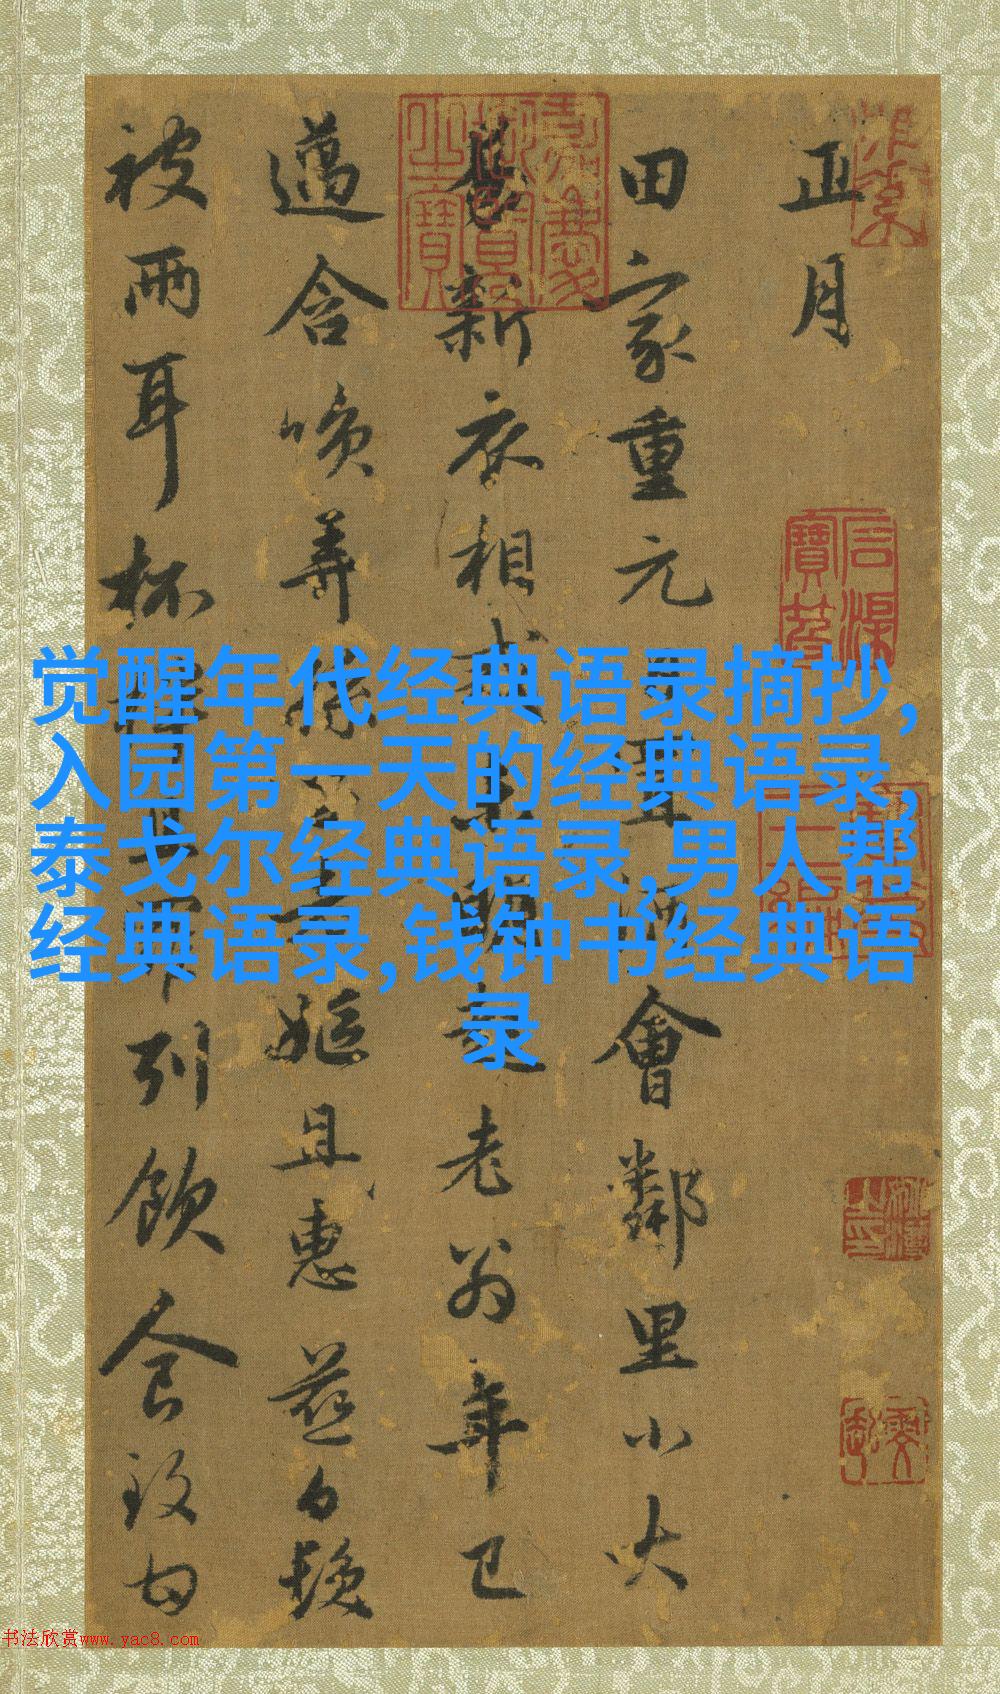 正月
田家重元日置酒會鄰里小大
易新衣相戒未明起老翁年已
邁含笑弄孫子老嫗且惠慈白鬢
被兩耳杯
列飲食致甘
觉醒年代经典语录摘抄,
入园第一天的经典语录,
泰戈尔经典语录,男人帮
经典语录,钱钟书经典语
录
书法欣赏www.yac8.com